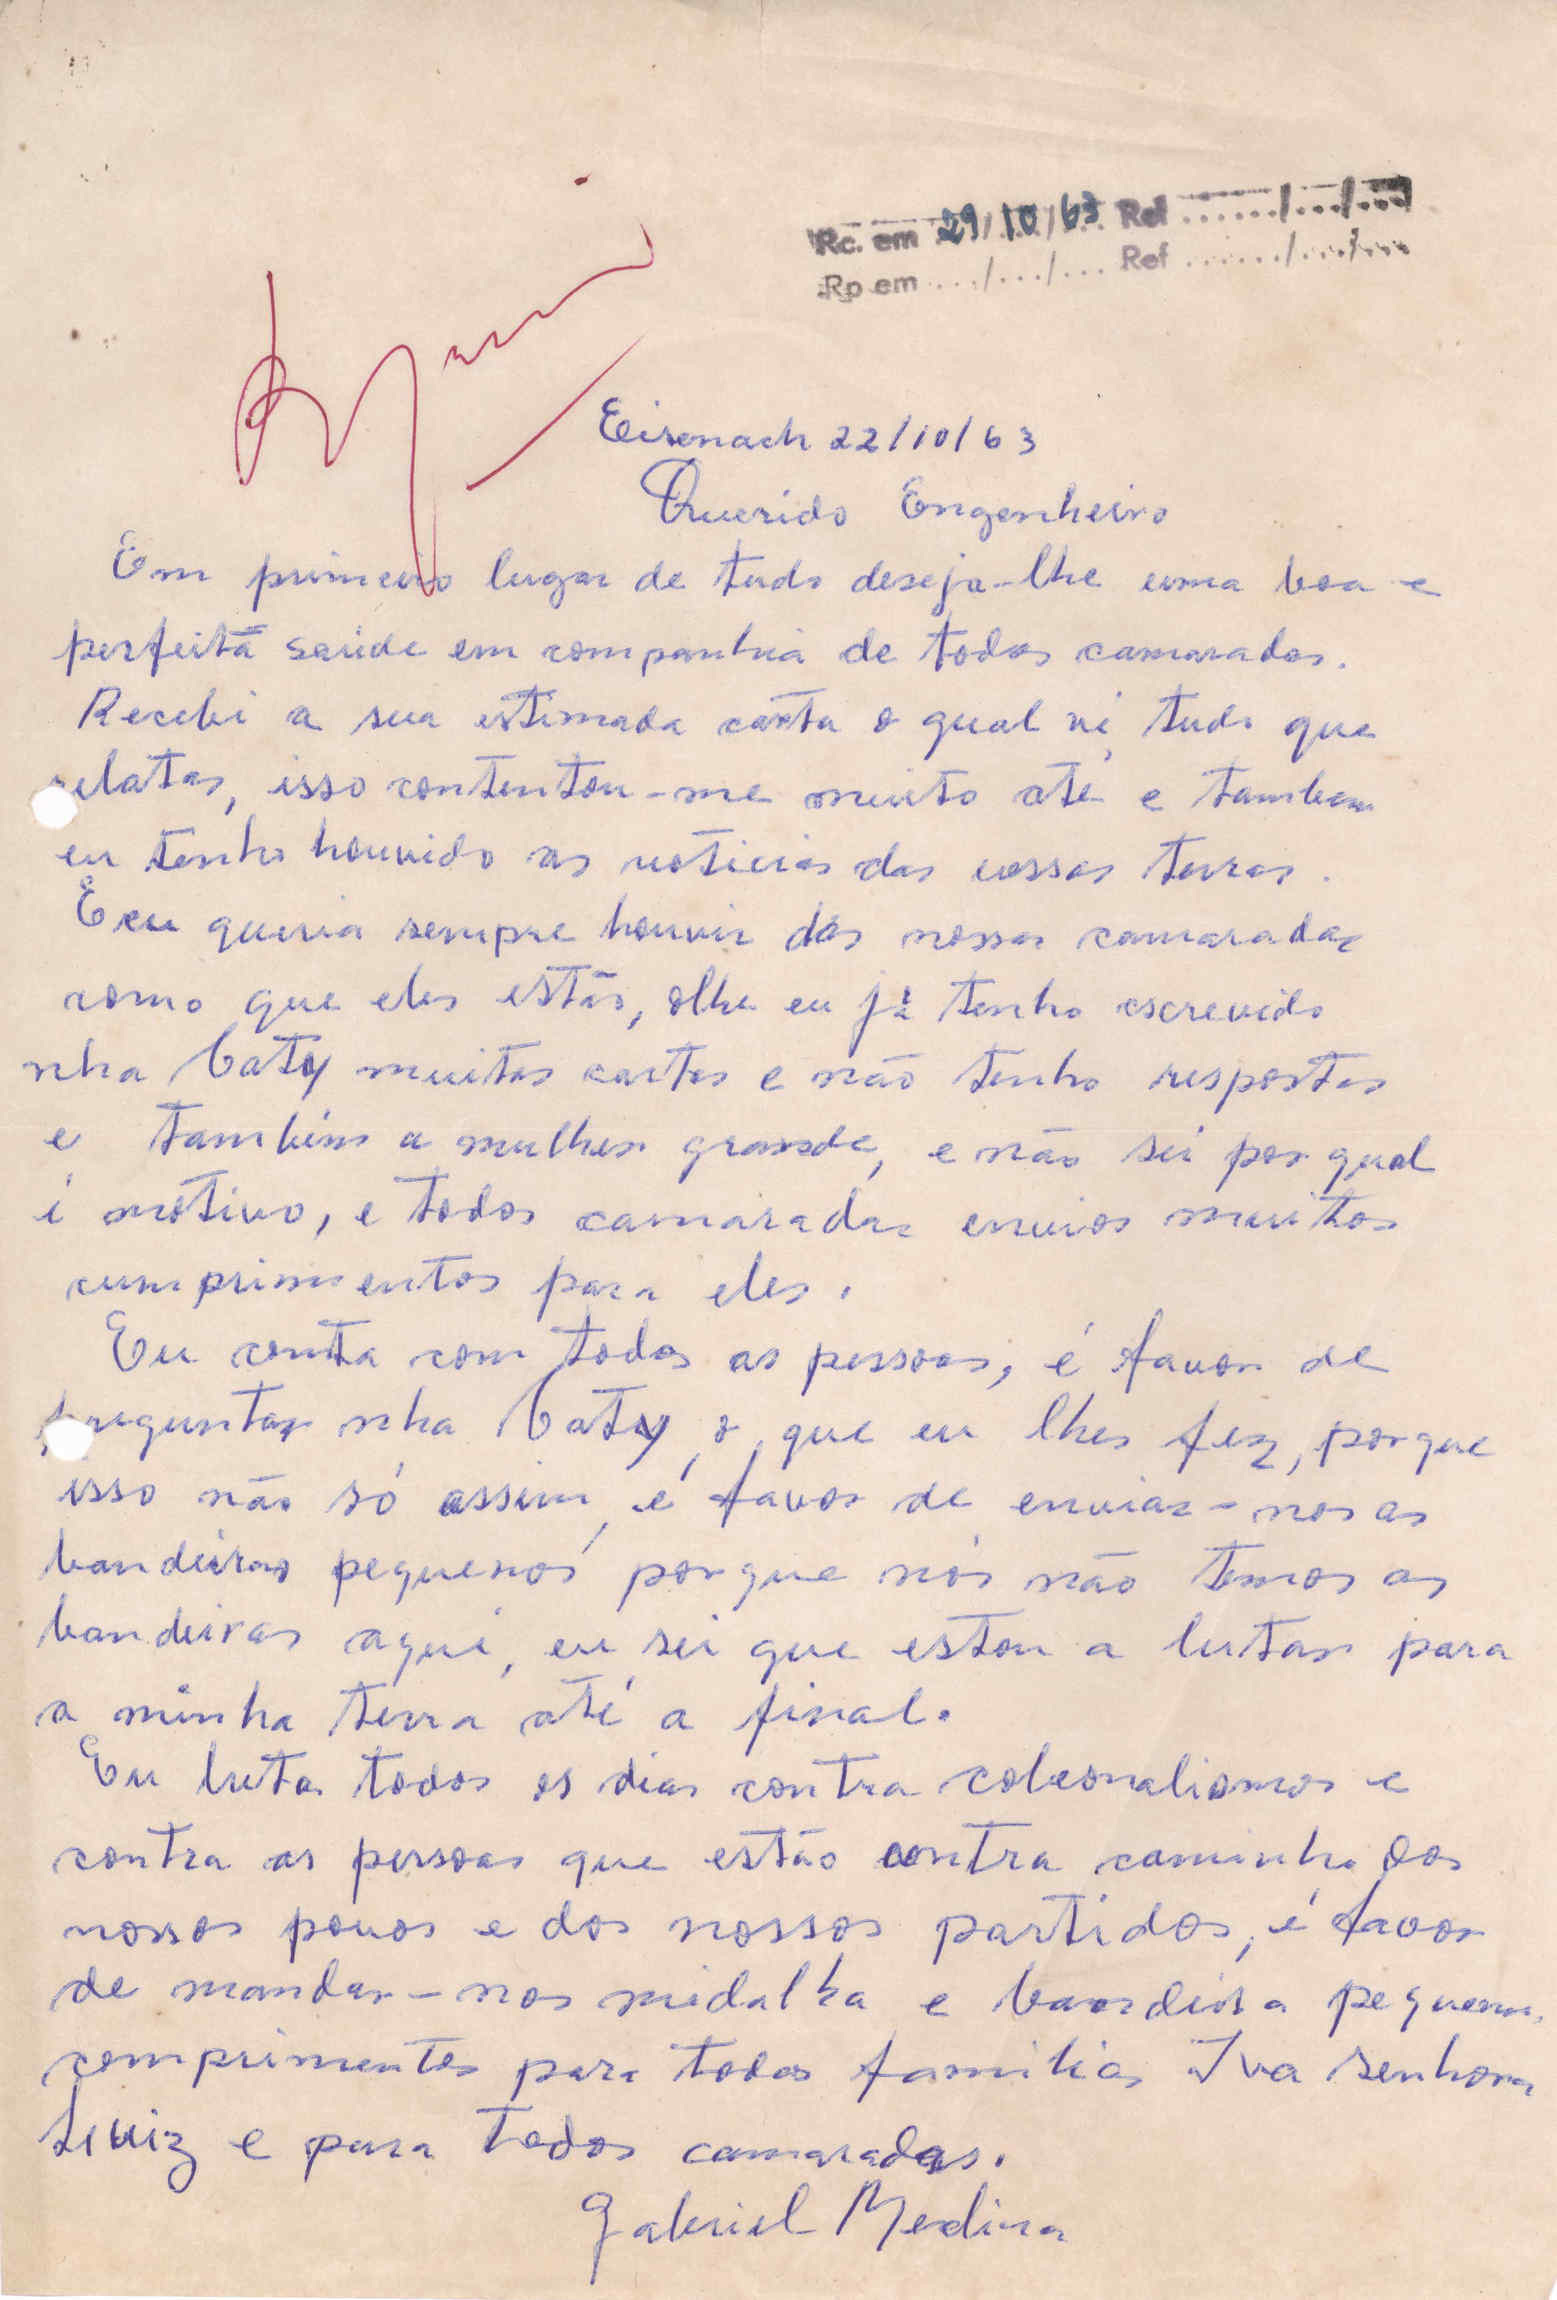 Rc. em 29/10/63 Ref ....../.../...
Rp em .../.../... Ref ....../.../...
Eisenach 22/10/63
Querido Engenheiro
Em primeiro lugar de tudo deseja-lhe uma boa e
perfeitã saúde em companhia de todos camaradas.
Recebi a sua estimada carta o qual vi tudo que
relatas, isso contentou-me muito até e tambem
eu tenho houvido as noticias das vossas terras.
E eu queria sempre houvir dos nossos camaradas
como que eles estão, olhe eu já tenho escrevido
nha Caty muitas cartas e não tenho respostas
e também a mulher grande, e não sei por qual
é motivo, e todos camaradas envios muitos
cumprimentos para eles.
Eu conta com todas as pessoas, é favor de
preguntar nha Caty, o que eu lhes fez, porque
isso não só assim, é favor de enviar-nos as
bandeiras pequenos porque nós não temos as
bandeiras aqui, eu sei que estou a lutar para
a minha terra até a final.
Eu luta todos os dias contra coleonalismos e
contra as pessoas que estão contra caminho dos
nossos povos e dos nossos partidos, é favor
de mandar-nos midalha e bandeira pequena.
comprimentos para todos familias Iva senhora
Luiz e para todos camaradas.
Gabriel Medina